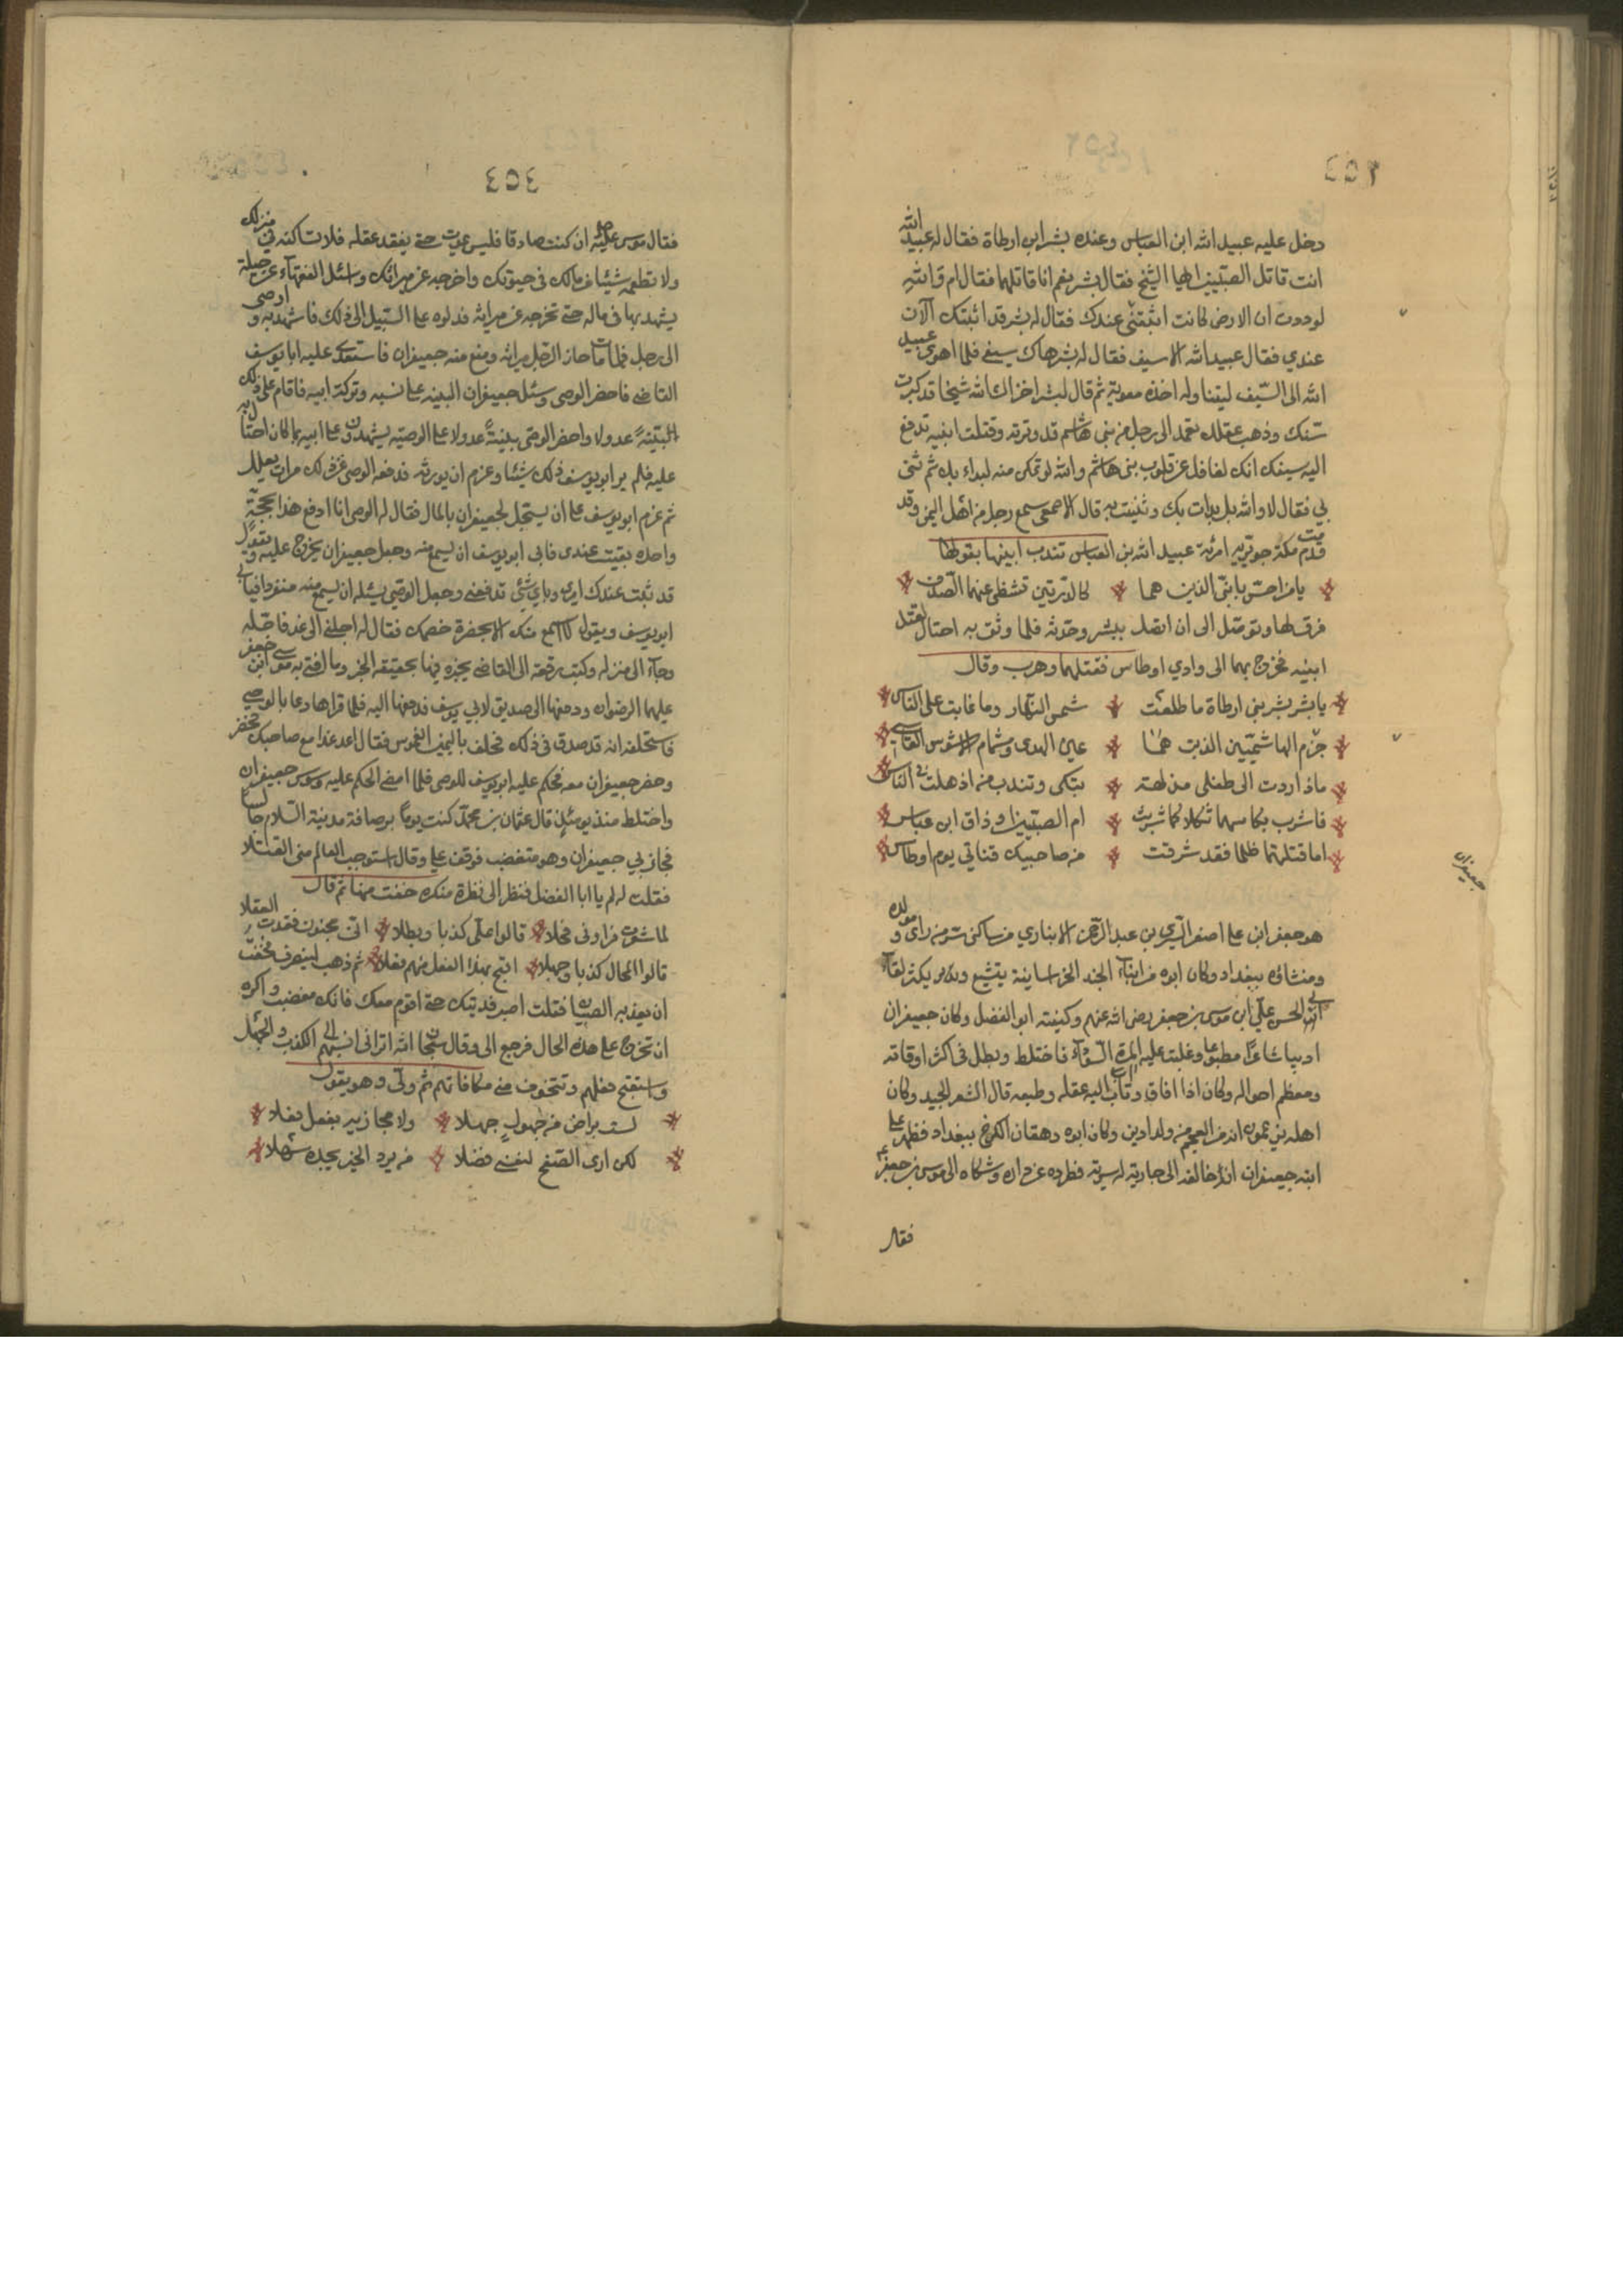 ٤٥٣
دخل عليه عبيد الله ابن العباس وعنده بشر ابن ارطاة فقال له عبيد الله
انت قاتل الصبيين ايها الشيخ فقال بشر نعم انا قاتلهما فقال ام والله
لوددت ان الارض كانت انبتتني عندك فقال له بشر قد انبتتك الآن
عندي فقال عبيد الله الا سيف فقال له بشر هاك سيفي فلما اهوى عبيد
الله الى السيف ليتناوله اخذه معوية ثم قال لبشر اخزاك الله شيخا قد كبرت
سنك وذهب عقلك تعمد الى رجل من بني هاشم قد وترته وقتلت ابنيه تدفع
اليه سيفك انك لغافل عن قلوب بني هاشم والله لو تمكن منه لبداء بك ثم ثنى
بي فقال لا والله بل بدات بك وثنيت به قال الاصمعي سمع رجل من اهل اليمن وقد
قدم مكة جويريه امرئة عبيد الله بن العباس تندب ابنيها بقولها
يا من احس بابني الذين هما كالدرتين تشظى عنهما الصدف
فرق لها وتوصل الى ان اتصل ببشر وحدثه فلما وثق به احتال لقتل
ابنيه فخرج بهما الى وادي اوطاس فقتلهما وهرب وقال
يا بشر بشر بني ارطاة ما طلعت شمس النهار وما غابت على الناس
من الهاشميين الذين هما عين الهدى وسمام الاشوس القاسي
ماذا اردت الى طفلي مدلهة تبكي وتندب من اذهلت في الناس
فاشرب بكاسهما ثكلا كما شربت ام الصبيين او ذاق ابن عباس
اما قتلتهما ظلما فقد شرقت من صاحبيك قناتي يوم اوطاس
جعيفران
هو جعفر ابن علي اصفر السري بن عبد الرحمن الابناري من ساكني سر من راى ومولده
ومنشاؤه ببغداد وكان ابوه من ابناء الجند الخراسانية يتشيع ويكثر لقاء
ابي الحسن علي ابن موسى بن جعفر رضي الله عنهم وكنيته ابو الفضل وكان جعيفران
اديبا شاعرا مطبوعا وغلبت عليه المرة السوداء فاختلط وبطل في اكثر اوقاته
ومعظم احواله وكان اذا افاق وثاب اليه عقله وطبعه قال الشعر الجيد وكان
اهله يزعمون انه من العجم من ولد ادين وكان ابوه دهقان الكرخ ببغداد فظهر على
ابنه جعيفران انه خالفه الى جارية له سرية فطرده عن داره وشكاه الى موسى بن جعفر
فقال
٤٥٤
فقال موسى عليه ان كنت صادقا فليس يموت حتى يفقد عقله فلا تساكنه في منزلك
ولا تطعمه شيئا من مالك في حيوتك واخرجه عن ميراثك واسئل الفقهاء عن حيلة
يشهد بها في ماله حتى تخرجه عن ميراثه فدلوه على السبيل الى ذلك فاشهد به واوصى
الى رجل فلما مات حاز الرجل ميراثه ومنع منه جعيفران فاستعدى عليه ابا يوسف
القاضي فاحضر الوصي وسئل جعيفران البينه على نسبه وتركة ابيه فاقام على ذلك
البينة عدولا واحضر الوصي بينة عدولا على الوصيه يشهدون على ابيه بما كان احتال به
عليه فلم ير ابو يوسف ذلك شيئا وعزم ان يورثه فدفعه الوصي عن ذلك مرات بعلل
ثم عزم ابو يوسف على ان يسجل لجعيفران بالمال فقال له الوصي انا ادفع هذا بحجة
واحدة بقيت عندي فابى ابو يوسف ان يسمع منه وجعل جعيفران يخرج عليه ويقول
قد ثبت عندك امري وباي شيء تدفعني وجعل الوصي يسئله ان يسمع منه منفردا فيابى
ابو يوسف ويقول لا اسمع منك الا بحضرة خصمك فقال له اجلني الى غد فاجله
وجاء الى منزله وكتب رقعة الى القاضي يخبره فيها بحقيقة الخبر وما افتى به موسى ابن جعفر
عليهما الرضوان ودفعها الى صديق لابي يوسف فدفعها اليه فلما قراها دعا بالوصي
فاستحلفه انه قد صدق في ذلك فحلف باليمين الغموس فقال اغد غدا مع صاحبك فحضر
وحضر جعيفران معه فحكم عليه ابو يوسف للوصي فلما امضى الحكم عليه وسوس جعيفران
واختلط منذ يومئذ قال عثمان بن محمد كنت يوما برصافة مدينة السلام جالسا
فجاز بي جعيفران وهو متغضب فوقف علي وقال استوجب العالم مني القتلا
فقلت له لم يا ابا الفضل فنظر الى نظرة منكرة خفت منها ثم قال
لما شعرت فراوني فحلا قالوا علي كذبا وبطلا اني مجنون فقدت العقلا
قالوا المحال كذبا وجهلا اقبح بهذا الفعل منهم فعلا ثم ذهب لينصرف فخفت
ان يعذبه الصبيان فقلت اصبر فديتك حتى اقوم معك فانك مغضب واكره
ان تخرج على هذه الحال فرجع الى وقال سبحان الله اتراني انسبهم الى الكذب والجهل
واستقبح فعلهم وتتخوف مني مكافاتهم ثم ولى وهو يقول
لست براض من جهول جهلا ولا مجازيه بفعل فعلا
لكن ارى الصفح لنفسي فضلا من يرد الخير يجده سهلا